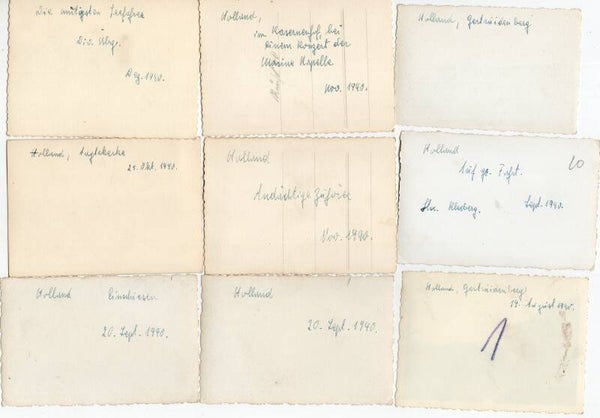 Die mutigsten
Div. Übg.
Dez. 1940.
Holland,
im Kasernenhof, bei
einem Konzert der
Marine Kapelle
Nov. 1940.
Holland, Gertruidenberg
Holland,
21. Okt. 1940.
Holland
Andächtige Zuhörer
Nov. 1940.
Holland
10
Auf gr. Fahrt.
Sept. 1940.
Holland Einschiesen
20. Sept. 1940.
Holland
20. Sept. 1940.
Holland, Gertruidenberg
August 1940.
1